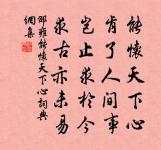 能懷天下心
肯了人間事
豈止求於今
求古亦未易
邵雍能懷天下心詞典
網集